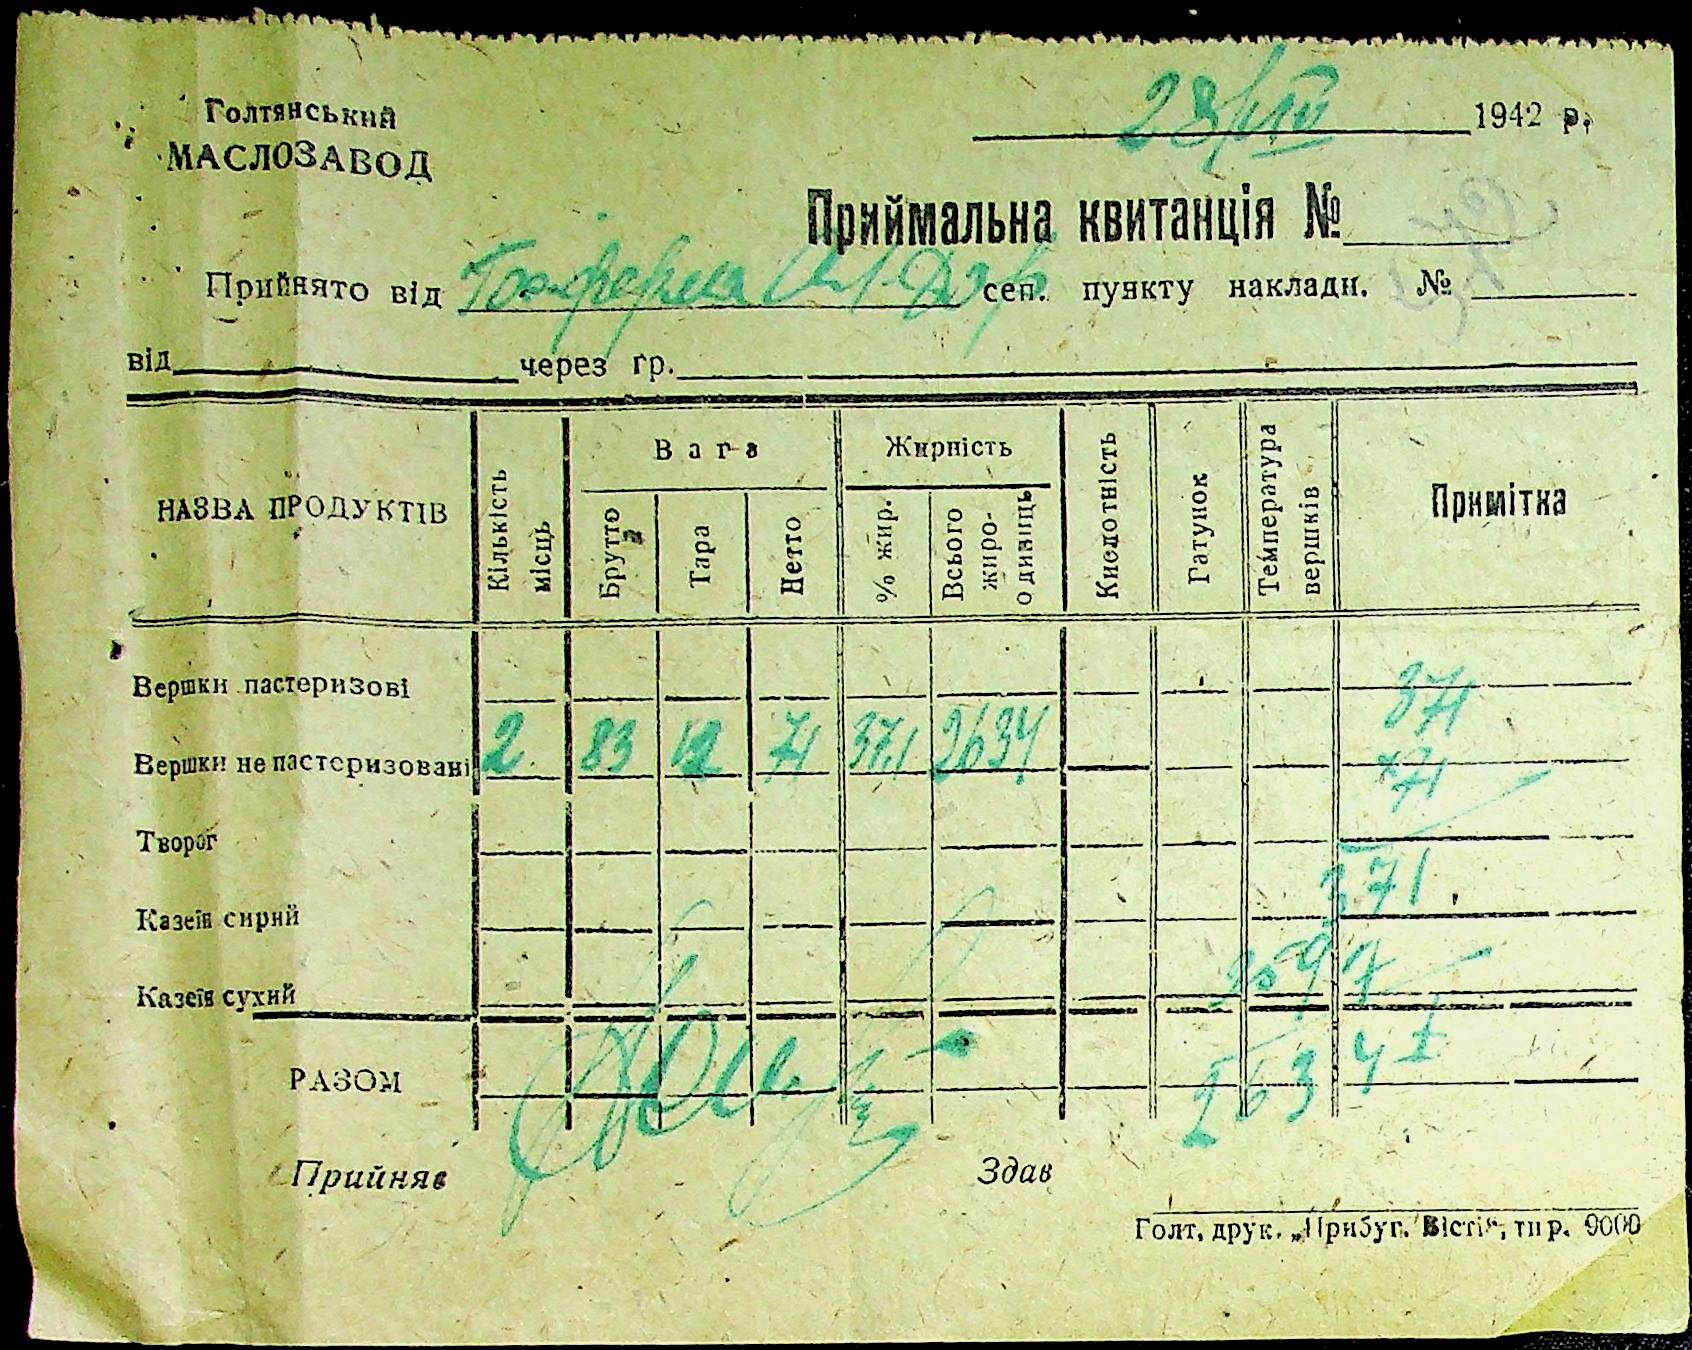 Голтянський
МАСЛОЗАВОД
28/VIII 1942 р.
Приймальна квитанція №
Прийнято від сеп. пункту накладн. №
від через гр.
НАЗВА ПРОДУКТІВ
Кількість місць
Вага
Брутто
Тара
Нетто
Жирність
% жир.
Всього жиро-одивиць
Кислотність
Гатунок
Температура вершків
Примітка
Вершки пастеризові 371
Вершки не пастеризовані 2 83 12 71 37.1 2634 ×71
Творог
371
Казеїн сирий
2597
Казеїн сухий
РАЗОМ 26341
Прийняв Здав
Голт. друк. „Прибуг. Вісті“, тир. 9000